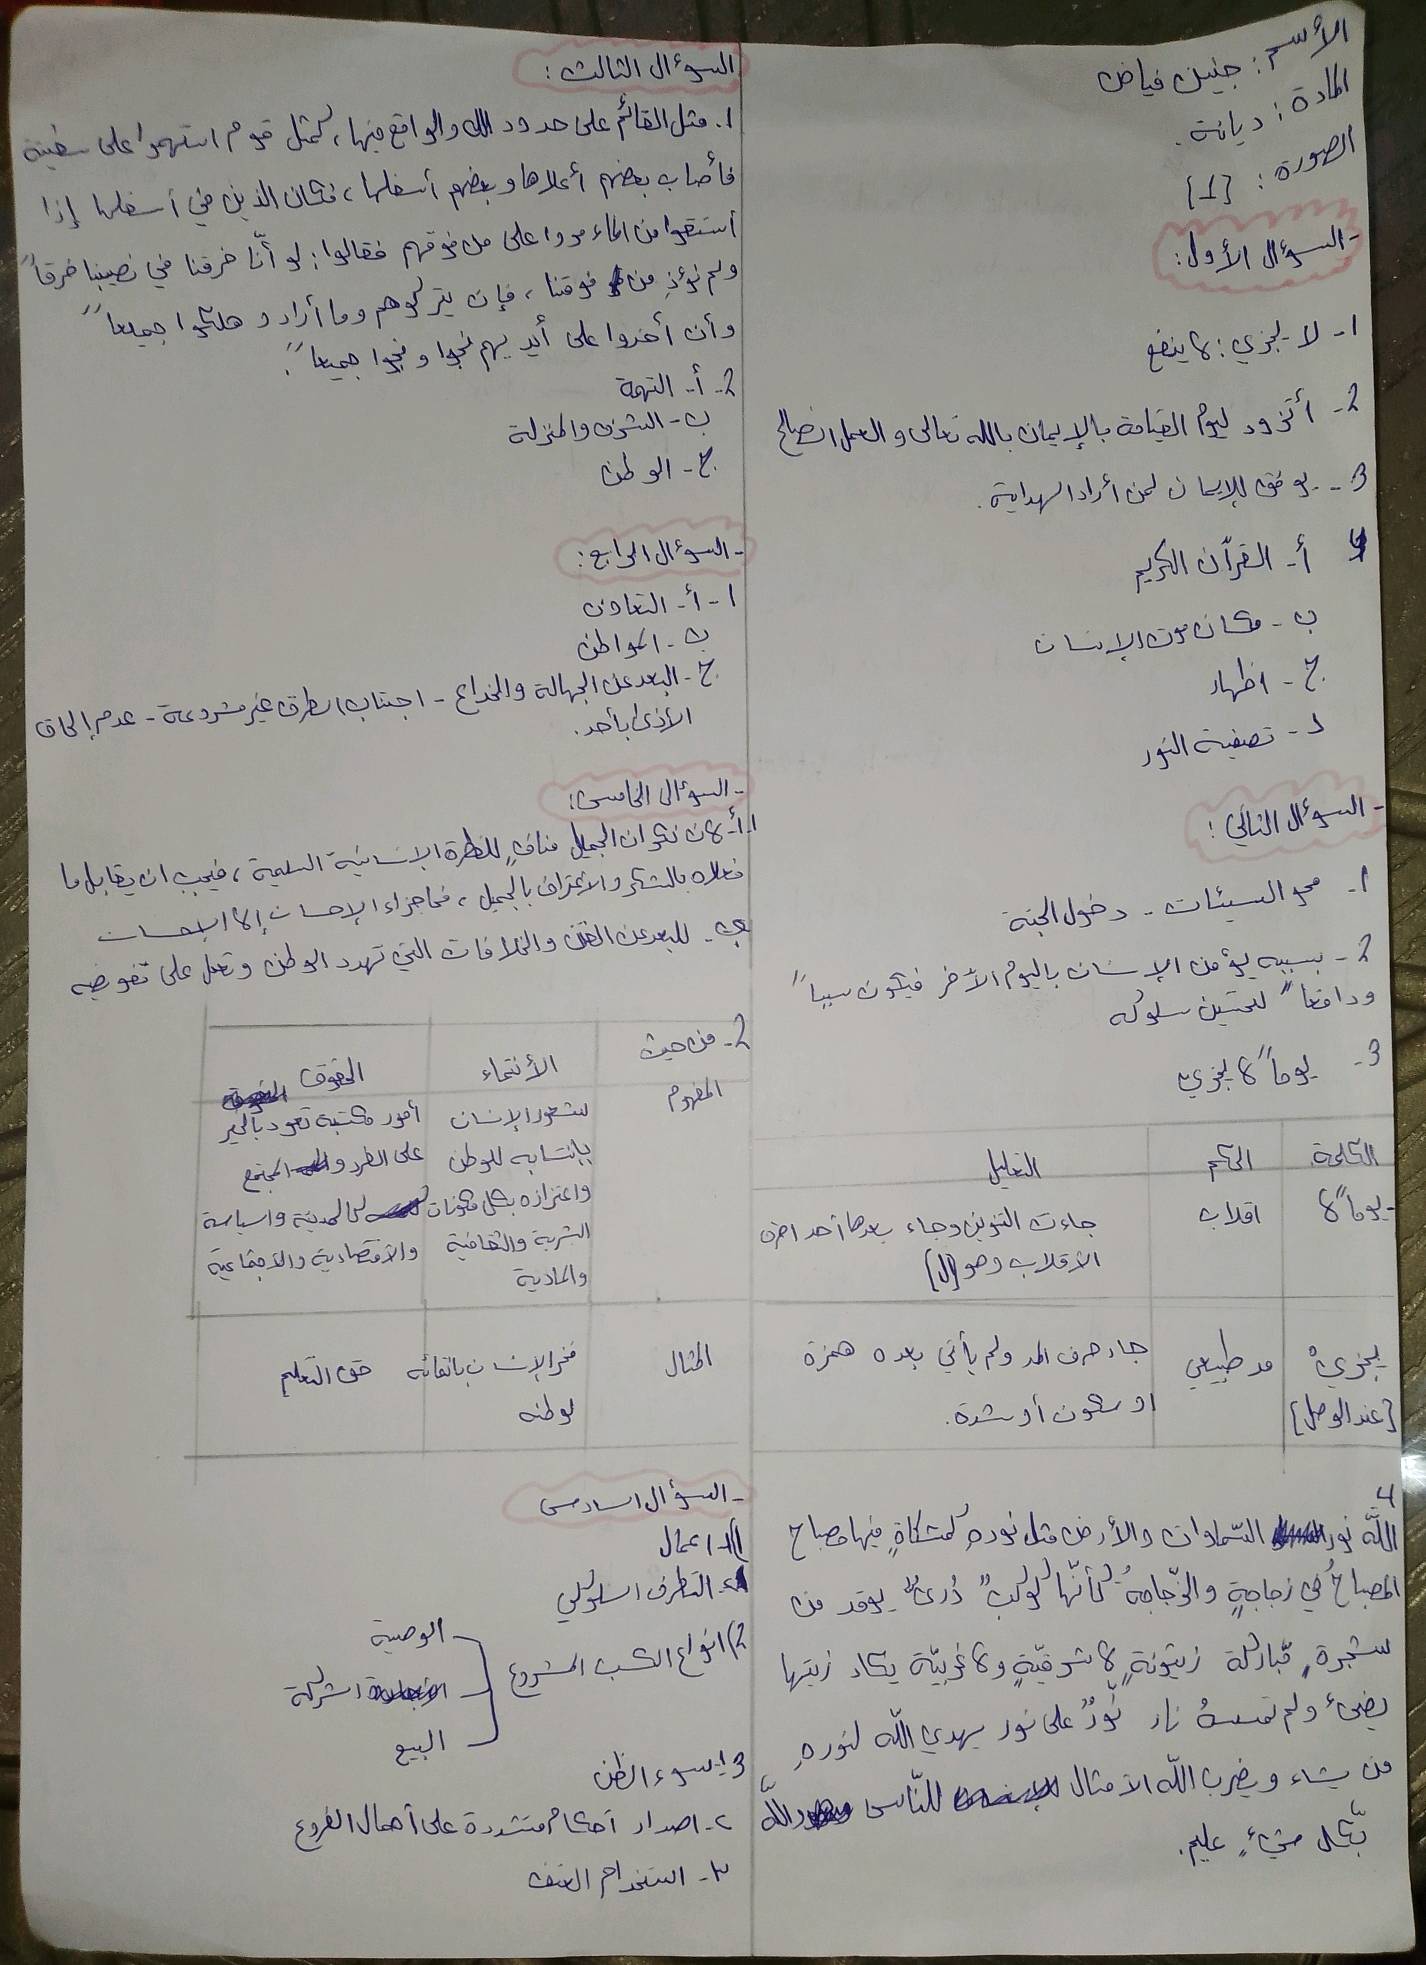 الأسم: جنين فياض
المادة: ديانة.
الصورة: [1]
- السؤال الأول:
1- لا يجزي: لا ينفع
2- أتزود ليوم القيامة بالإيمان بالله تعالى والعمل الصالح
3- يوفق للإيمان لمن أراد الهداية.
4 أ- القرآن الكريم
ب- مكان موت الإنسان
ج- اظهار
د- تصفية النور
- السؤال الثاني:
1- محو السيئات - دخول الجنة
2- بسببه يؤمن الإنسان باليوم الآخر فيكون سبباً
ودافعاً لتحسين سلوكه
3- يوماً لا يجزي
الكلمة الحكم التعليل
- يوماً لا اقلاب جاءت التنوين وجاء بعدها أحد احرف
الاقلاب وهو [ل]
يجزي مد طبيعي جاء حرف المد ولم يأتي بعده همزة
[عند الوصل] او سكون أو شدة.
4
اللّه نور السّماوات والأرض مثل نوره كمشكاةٍ فيها مصباح
المصباحُ في زجاجةٍ والزّجاجةُ كأنّها كوكبٌ دُريٌ يوقد من
شجرةٍ مّباركة زيتونةٍ لا شرقيّةٍ ولا غربيّة يكاد زيتها
يضيءُ ولم تمسسهُ نار نّورٌ على نور يهدي اللّه لنورهِ
من يشاء ويضرب اللّه الأمثال للنّاس واللّه
بّكل شيءٍ عليم.
السؤال الثالث:
1. مثل القائم على حدود الله والواقع فيها، كمثل قوم استهموا على سفينة
فأصاب بعضهم أعلاها وبعضهم أسفلها، فكان الذين في أسفلها إذا
استقوا من الماء مروا على من فوقهم فقالوا: لو أنّا خرقنا في نصيبنا خرقاً
ولم نؤذِ من فوقنا، فإن يتركوهم وما أرادو هلكوا جميعاً
وأن أخذوا على أيديهم نجوا ونجوا جميعاً.
2- أ- التهمة
ب- الشرف والمنزلة
ج- الوطن
- السؤال الرابع:
1- أ- التعاون
ب- المواطن
ج- البعد عن الجهالة والخداع - اجتناب الطرق غير مشروعة - عدم إلحاق
الأذى بأحد.
- السؤال الخامس:
1. أ- لان نكران الجميل منافٍ للفطرة الإنسانية السليمة، فيجب ان يقابل ما
فعلاه بالشكر والاعتراف بالجميل، فما جزاء الإحسان إلا الإحسان
ب- للبعد عن الفتن والخلافات التي تهدد الوطن وتعمل على تقويضه
2- من حيث الأنتماء الحقوق
المفهوم شعور الإنسان أمور مكتسبة تعود بالخير
بإنتسابه للوطن على الفرد و المجتمع
واعتزازه بكل مكونات كالمدنية والسياسة
البشرية والثقافية والاقتصادية والاجتماعية
والمادية
المثال فخر الإنسان بانتمائه حق التعليم
لوطنه
- السؤال السادس
1) 1- اعمال
2- التطرف السلوكي
2) انواع الكسب المشروع
الوصية
الشركة
البيع
3 1- سوء الظن
٢- اصدار أحكام متشددة على أهمال الفروع
٣- استخدام العنف